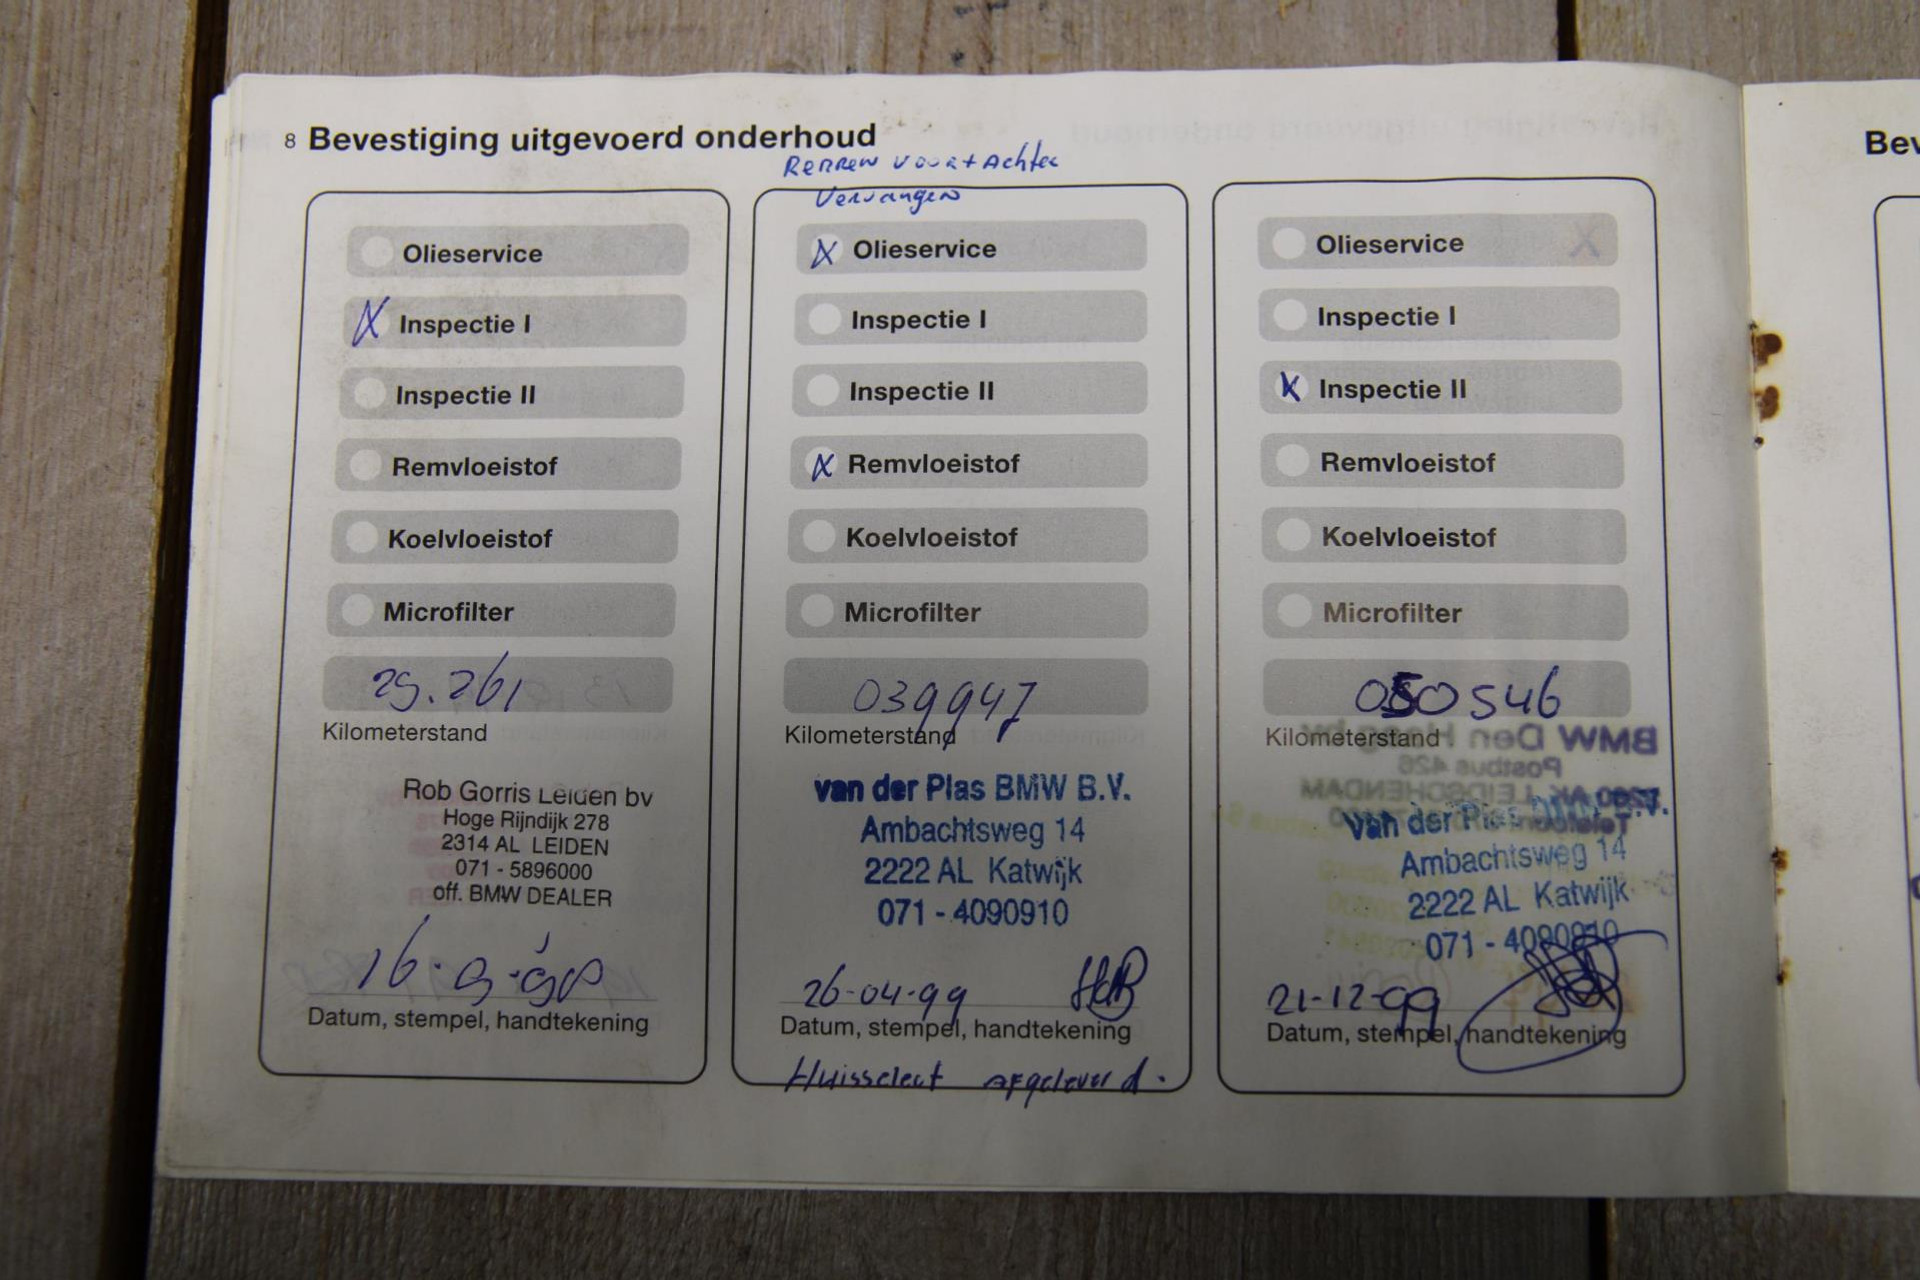 8 Bevestiging uitgevoerd onderhoud
Remmen voor + Achter
Vervangen
Olieservice
Inspectie I
Inspectie II
Remvloeistof
Koelvloeistof
Microfilter
29.261
Kilometerstand
Rob Gorris Leiden bv
Hoge Rijndijk 278
2314 AL LEIDEN
071 - 5896000
off. BMW DEALER
Datum, stempel, handtekening
X Olieservice
Inspectie I
Inspectie II
X Remvloeistof
Koelvloeistof
Microfilter
039947
Kilometerstand
van der Plas BMW B.V.
Ambachtsweg 14
2222 AL Katwijk
071 - 4090910
26-04-99
Datum, stempel, handtekening
Huisselect Afgeleverd.
Olieservice
Inspectie I
X Inspectie II
Remvloeistof
Koelvloeistof
Microfilter
050546
Kilometerstand
van der Plas BMW B.V.
Ambachtsweg 14
2222 AL Katwijk
071 - 4090910
21-12-99
Datum, stempel, handtekening
Bev